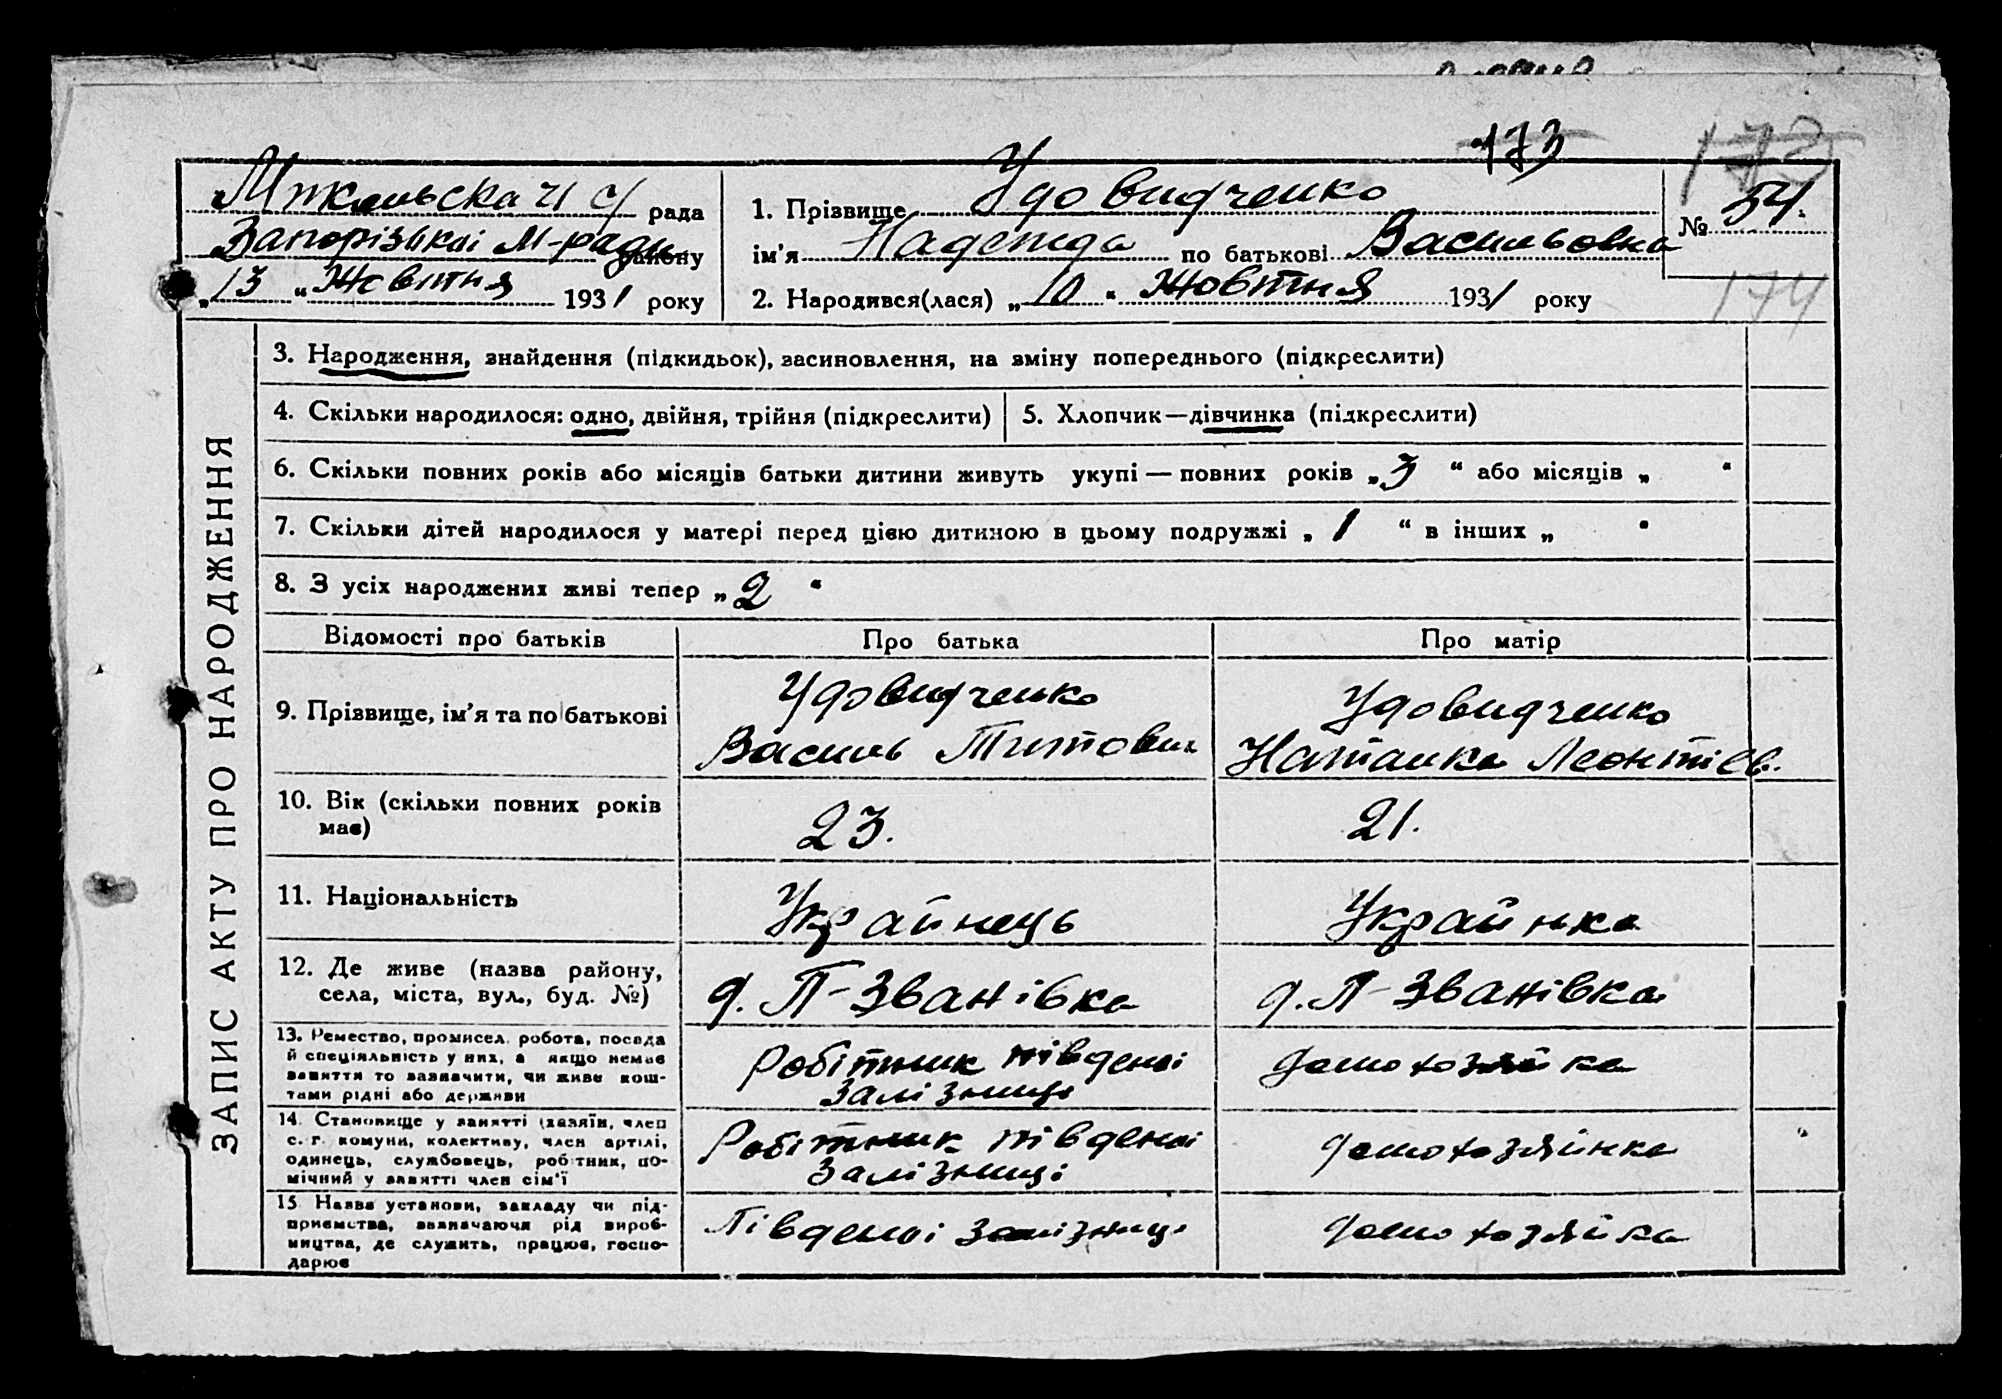 173
172
Микольська ч с/ рада
Запорізької М-ради району
„13“ Жовтня 1931 року
1. Прізвище Удовидченко
ім'я Надежда по батькові Васильовна
2. Народився(лася) „10“ Жовтня 1931 року
№ 54.
174
ЗАПИС АКТУ ПРО НАРОДЖЕННЯ
3. Народження, знайдення (підкидьок), засиновлення, на зміну попереднього (підкреслити)
4. Скільки народилося: одно, двійня, трійня (підкреслити)
5. Хлопчик—дівчинка (підкреслити)
6. Скільки повних років або місяців батьки дитини живуть укупі — повних років „3“ або місяців „ “
7. Скільки дітей народилося у матері перед цією дитиною в цьому подружжі „1“ в інших „ “
8. З усіх народжених живі тепер „2“
Відомості про батьків
Про батька
Про матір
9. Прізвище, ім'я та по батькові
Удовидченко
Василь Титович
Удовидченко
Наталка Леонтіев.
10. Вік (скільки повних років
має)
23.
21.
11. Національність
Украйнець
Украйнка
12. Де живе (назва району,
села, міста, вул., буд. №)
д. П-Званівка
д. П-Званівка
13. Ремество, промисел, робота, посада
й спеціяльність у них, а якщо немає
заняття то зазначити, чи живе кош-
тами рідні або держави
Робітник південоі
Залізниці
домохозяйка
14. Становище у занятті (хазяїн, член
с.-г. комуни, колективу, член артілі,
одинець, службовець, робітник, по-
мічний у занятті член сім'ї
Робітник південоі
Залізниці
домохозяйнка
15 Назва установи, закладу чи під-
приємства, зазначаючи рід вироб-
ництва, де служить, працює, госпо-
дарює
Південоі залізниці
домохозяйка